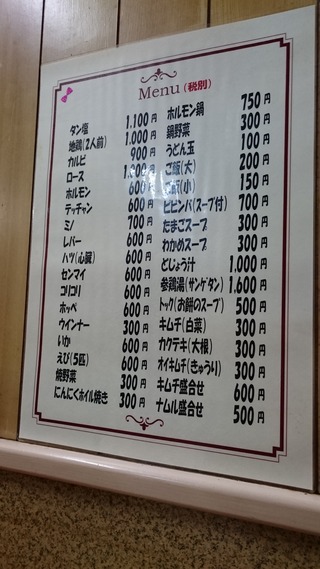 Menu(税別)
タン塩 1,100円
地鶏(2人前) 1,000円
カルビ 900円
ロース 円
ホルモン 600円
テッチャン 600円
ミノ 700円
レバー 600円
ハツ(心臓) 600円
センマイ 600円
コリコリ 600円
ホッペ 600円
ウインナー 300円
いか 600円
えび(5匹) 600円
焼野菜 300円
にんにくホイル焼き 300円
ホルモン鍋 750円
鍋野菜 300円
うどん玉 100円
ご飯(大) 200円
ご飯(小) 150円
ビビンバ(スープ付) 700円
たまごスープ 300円
わかめスープ 300円
どじょう汁 1,000円
参鶏湯(サンゲタン) 1,600円
トック(お餅のスープ) 500円
キムチ(白菜) 300円
カクテキ(大根) 300円
オイキムチ(きゅうり) 300円
キムチ盛合せ 600円
ナムル盛合せ 500円